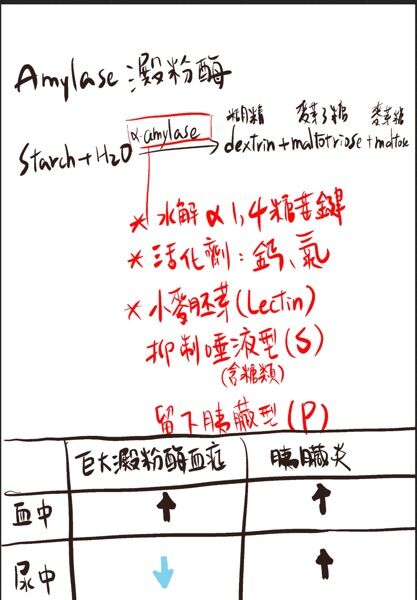 Amylase 澱粉酶
糊精 麥芽三糖 麥芽糖
Starch + H2O α-amylase dextrin + maltotriose + maltose
* 水解 α1,4糖苷鍵
* 活化劑：鈣、氯
* 小麥胚芽(Lectin)
抑制唾液型(S)
(含糖類)
留下胰臟型(P)
巨大澱粉酶血症 胰臟炎
血中 ↑ ↑
尿中 ↓ ↑